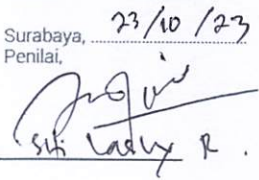 Surabaya, 23/10/23
Penilai,
Siti R.